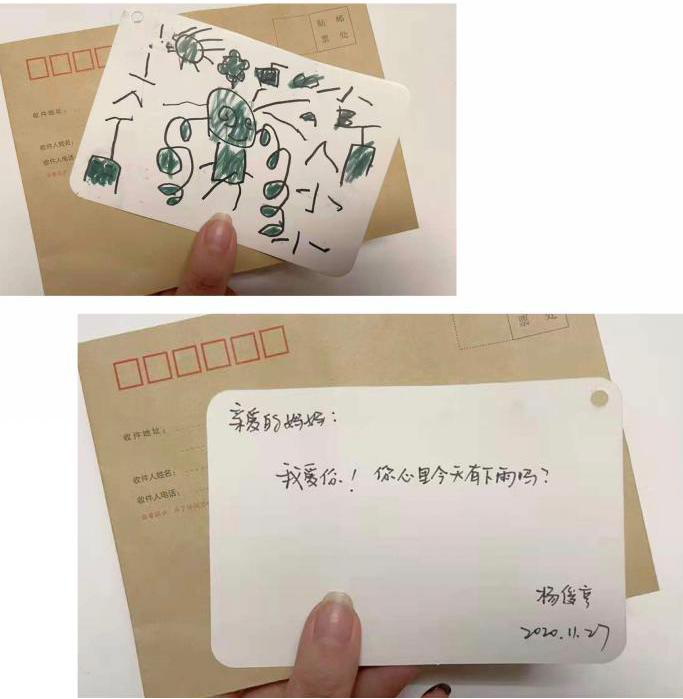 贴 邮
票 处
收件地址：
收件人姓名：
收件人电话：
票 处
收件地址：
收件人姓名：
收件人电话：
亲爱的妈妈：
我爱你！你心里今天有下雨吗？
杨俊亨
2020.11.27